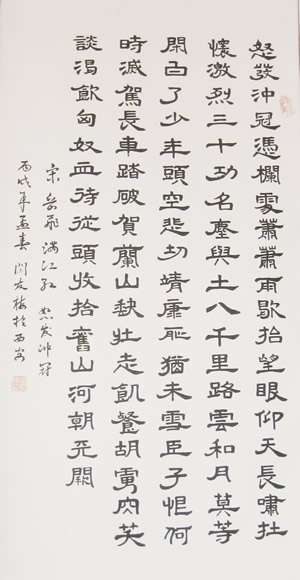 怒發沖冠憑欄處蕭蕭雨歇抬望眼仰天長嘯壯
懷激烈三十功名塵與土八千里路雲和月莫等
閑白了少年頭空悲切靖康恥猶未雪臣子恨何
時滅駕長車踏破賀蘭山缺壯志飢餐胡虜肉笑
談渴飲匈奴血待從頭收拾舊山河朝天闕
宋岳飛满江红怒发冲冠
丙戌年孟春友梅於西安